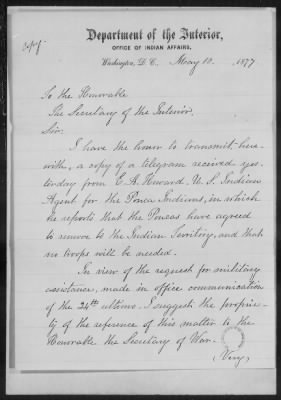 Copy.
Department of the Interior,
OFFICE OF INDIAN AFFAIRS.
Washington, D.C. May 10. 1877
To the Honorable
The Secretary of the Interior.
Sir:
I have the honor to transmit here-
with, a copy of a telegram received yes-
terday from E. A. Howard U. S. Indian
Agent for the Ponca Indians, in which
he reports that the Poncas have agreed
to remove to the Indian Territory, and that
no troops will be needed.
In view of the request for military
assistance, made in office communication
of the 24th ultimo, I suggest the proprie-
ty of the reference of this matter to the
Honorable the Secretary of War.
Very,